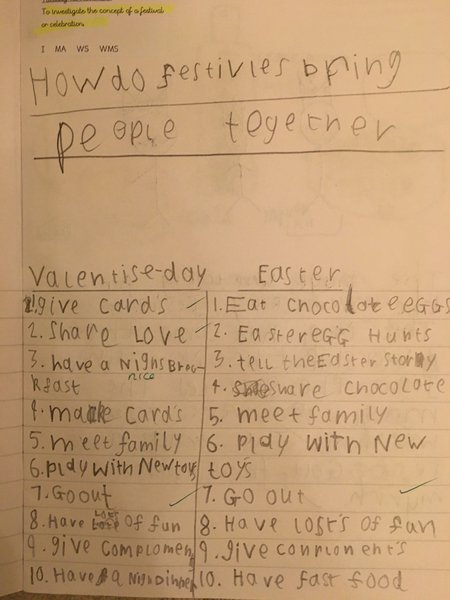 To investigate the concept of a festival
or celebration.
I MA WS WMS
How do festivies bring
people together
Valentise-day Easter
1. give cards 1. Eat chocolate eGGs
2. Share Love 2. Easter eGG Hunts
3. have a Nighs Break- 3. tell the Easter Story
kfast nice 4. Share Chocolate
4. make cards 5. meet family
5. meet family 6. play with New
6. play with New toys toys
7. Go out 7. Go out
8. Have lots of fun 8. Have lost's of fun
9. give complemen 9. give conmoment's
10. Have a Nigh Dinner 10. Have fast food